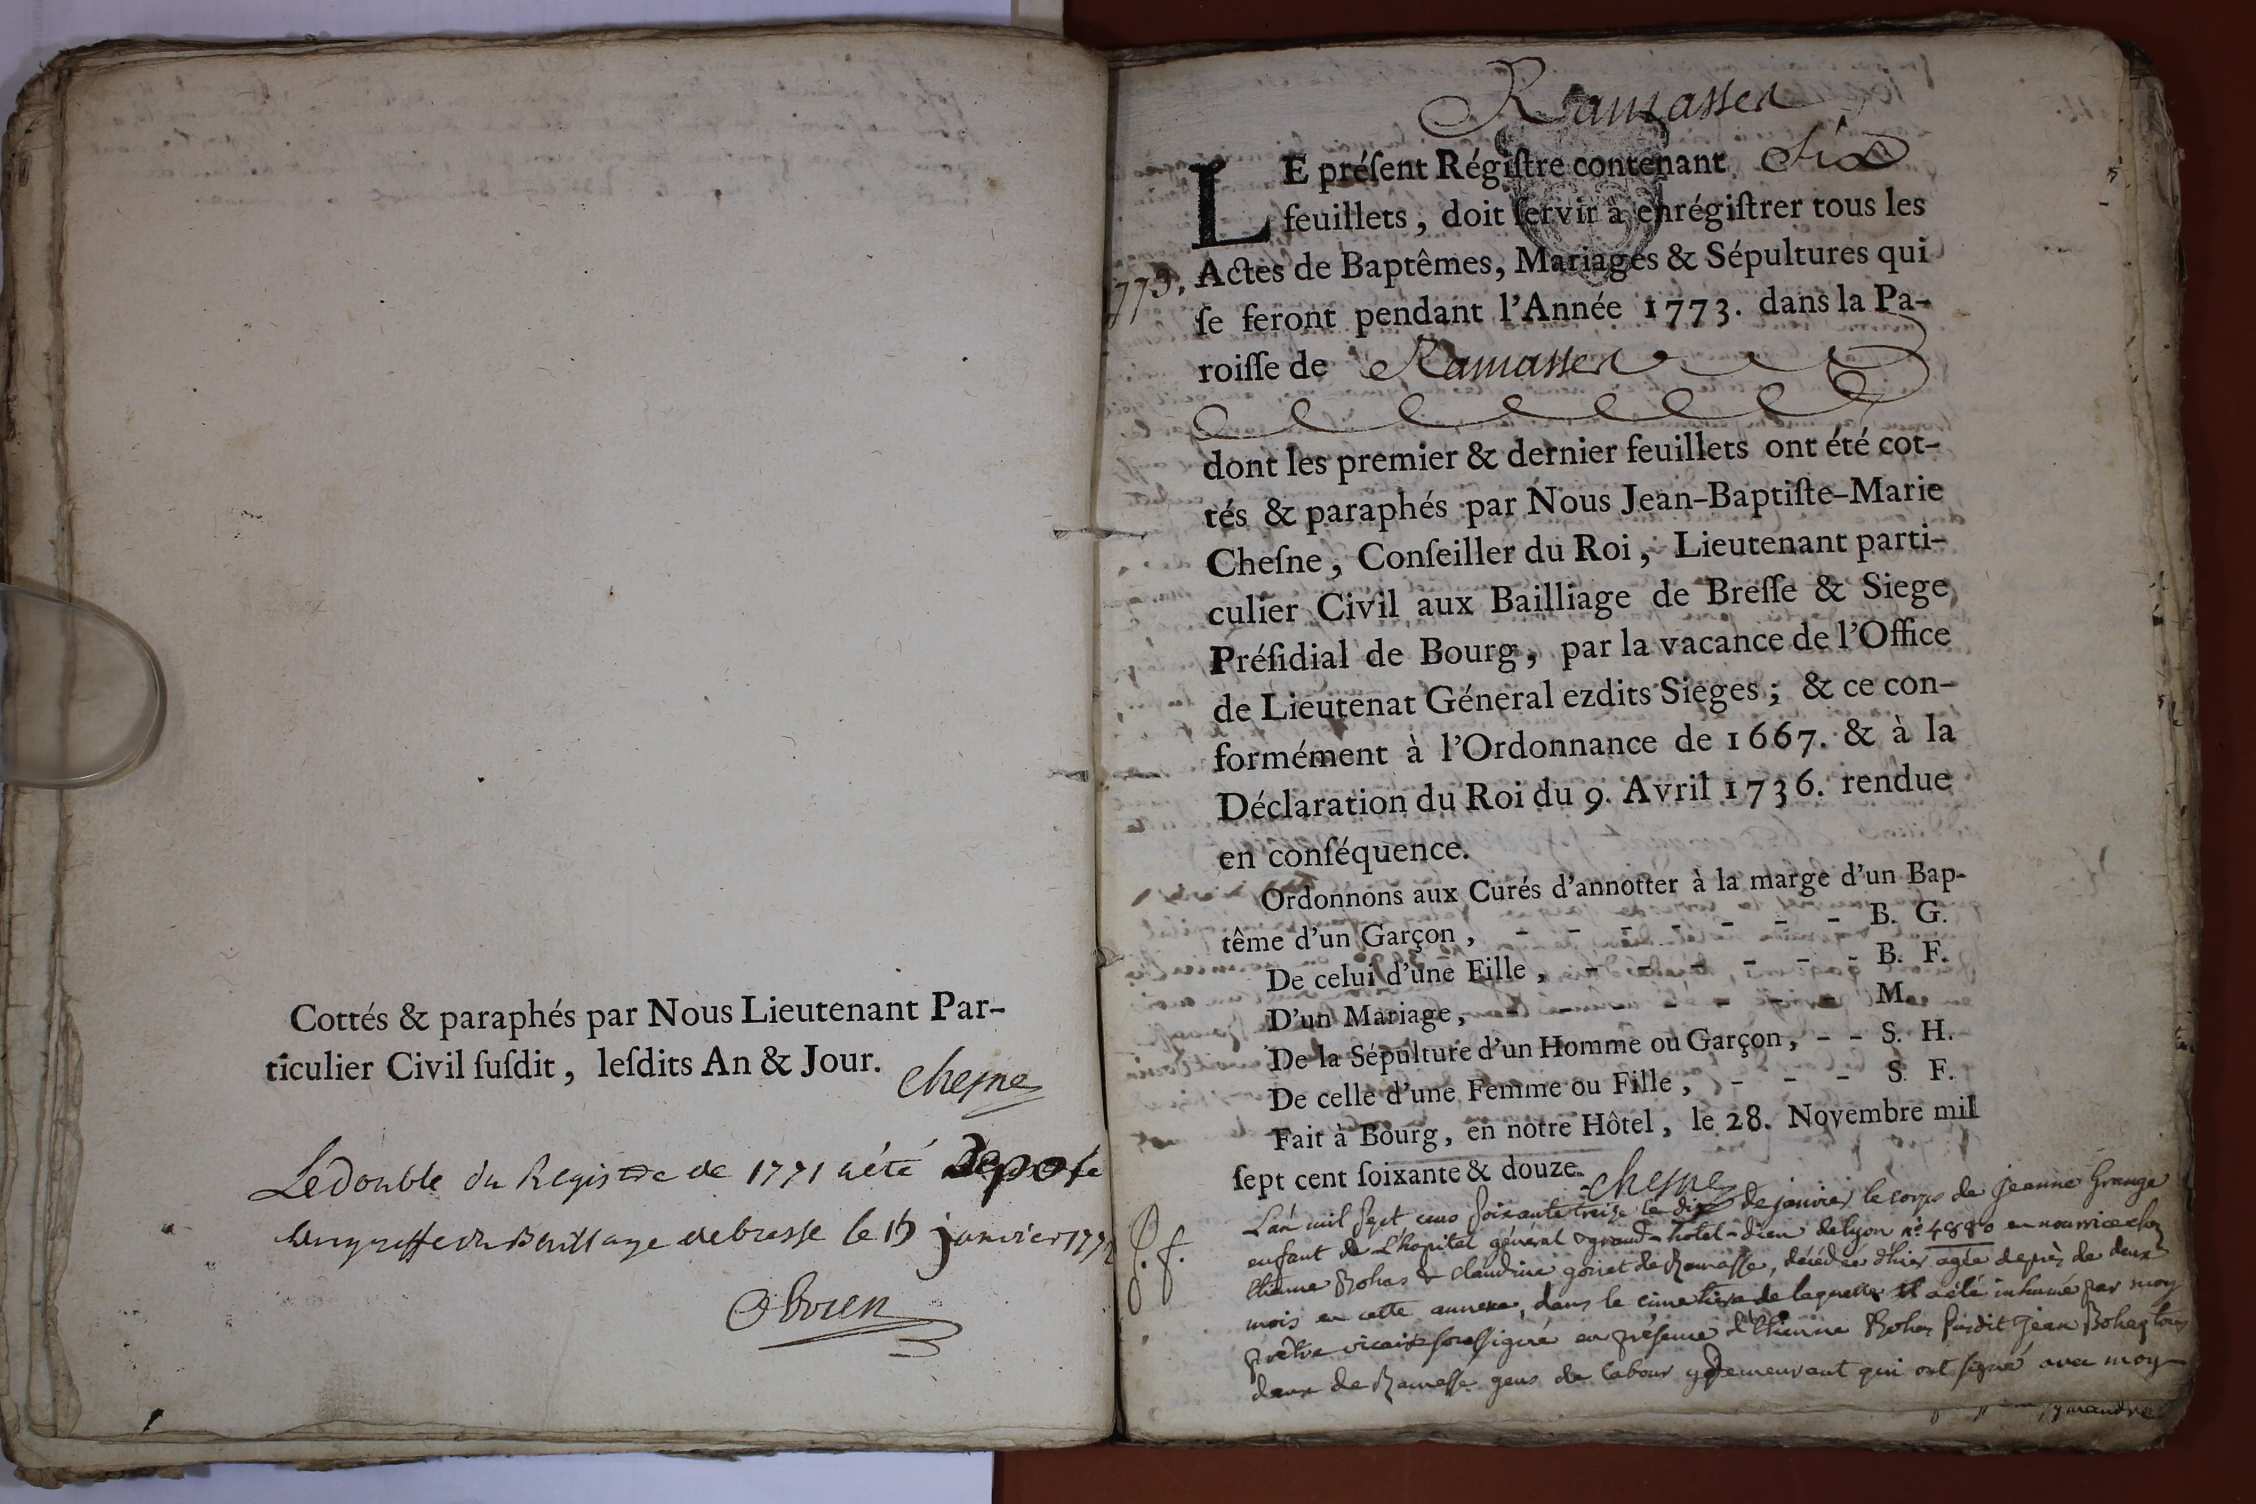 Cottés & paraphés par Nous Lieutenant Par-
ticulier Civil ſuſdit, leſdits An & Jour.
Cheſne
Le double du Registre de 1771 a été deposé
au greffe du Bailliage de bresse le 15 janvier 177
Ramasser
LE préſent Régiſtre contenant Six
feuillets, doit ſervir à enrégiſtrer tous les
Actes de Baptêmes, Mariages & Sépultures qui
ſe feront pendant l'Année 1773. dans la Pa-
roiſſe de Ramasser
dont les premier & dernier feuillets ont été cot-
tés & paraphés par Nous Jean-Baptiſte-Marie
Cheſne, Conſeiller du Roi, Lieutenant parti-
culier Civil aux Bailliage de Breſſe & Siege
Préſidial de Bourg, par la vacance de l'Office
de Lieutenat Géneral ezdits Sieges; & ce con-
formément à l'Ordonnance de 1667. & à la
Déclaration du Roi du 9. Avril 1736. rendue
en conſéquence.
Ordonnons aux Curés d'annotter à la marge d'un Bap-
tême d'un Garçon, - - - - - - - B. G.
De celui d'une Fille, - - - - - - B. F.
D'un Mariage, - - - - - - - M.
De la Sépulture d'un Homme ou Garçon, - - S. H.
De celle d'une Femme ou Fille, - - - S. F.
Fait à Bourg, en notre Hôtel, le 28. Novembre mil
ſept cent ſoixante & douze. Cheſne
S. f.
L'an mil sept cens soixante treize le dix de janvier le corps de jeanne Grange
enfant de L'hopital général & grand-hotel-dieu de lyon n° 4880 en nourrice chez
Etienne Bohas & Claudine goiret de Ramasse, décédée d'hier agée de près de deux
mois en cette annexe, dans le cimetiere de laquelle il a été inhumé par moy
prêtre vicaire soussigné en présence d'Etienne Bohas susdit jean Bohas tous
deux de Ramasse gens de labour y demeurant qui ont signé avec moy